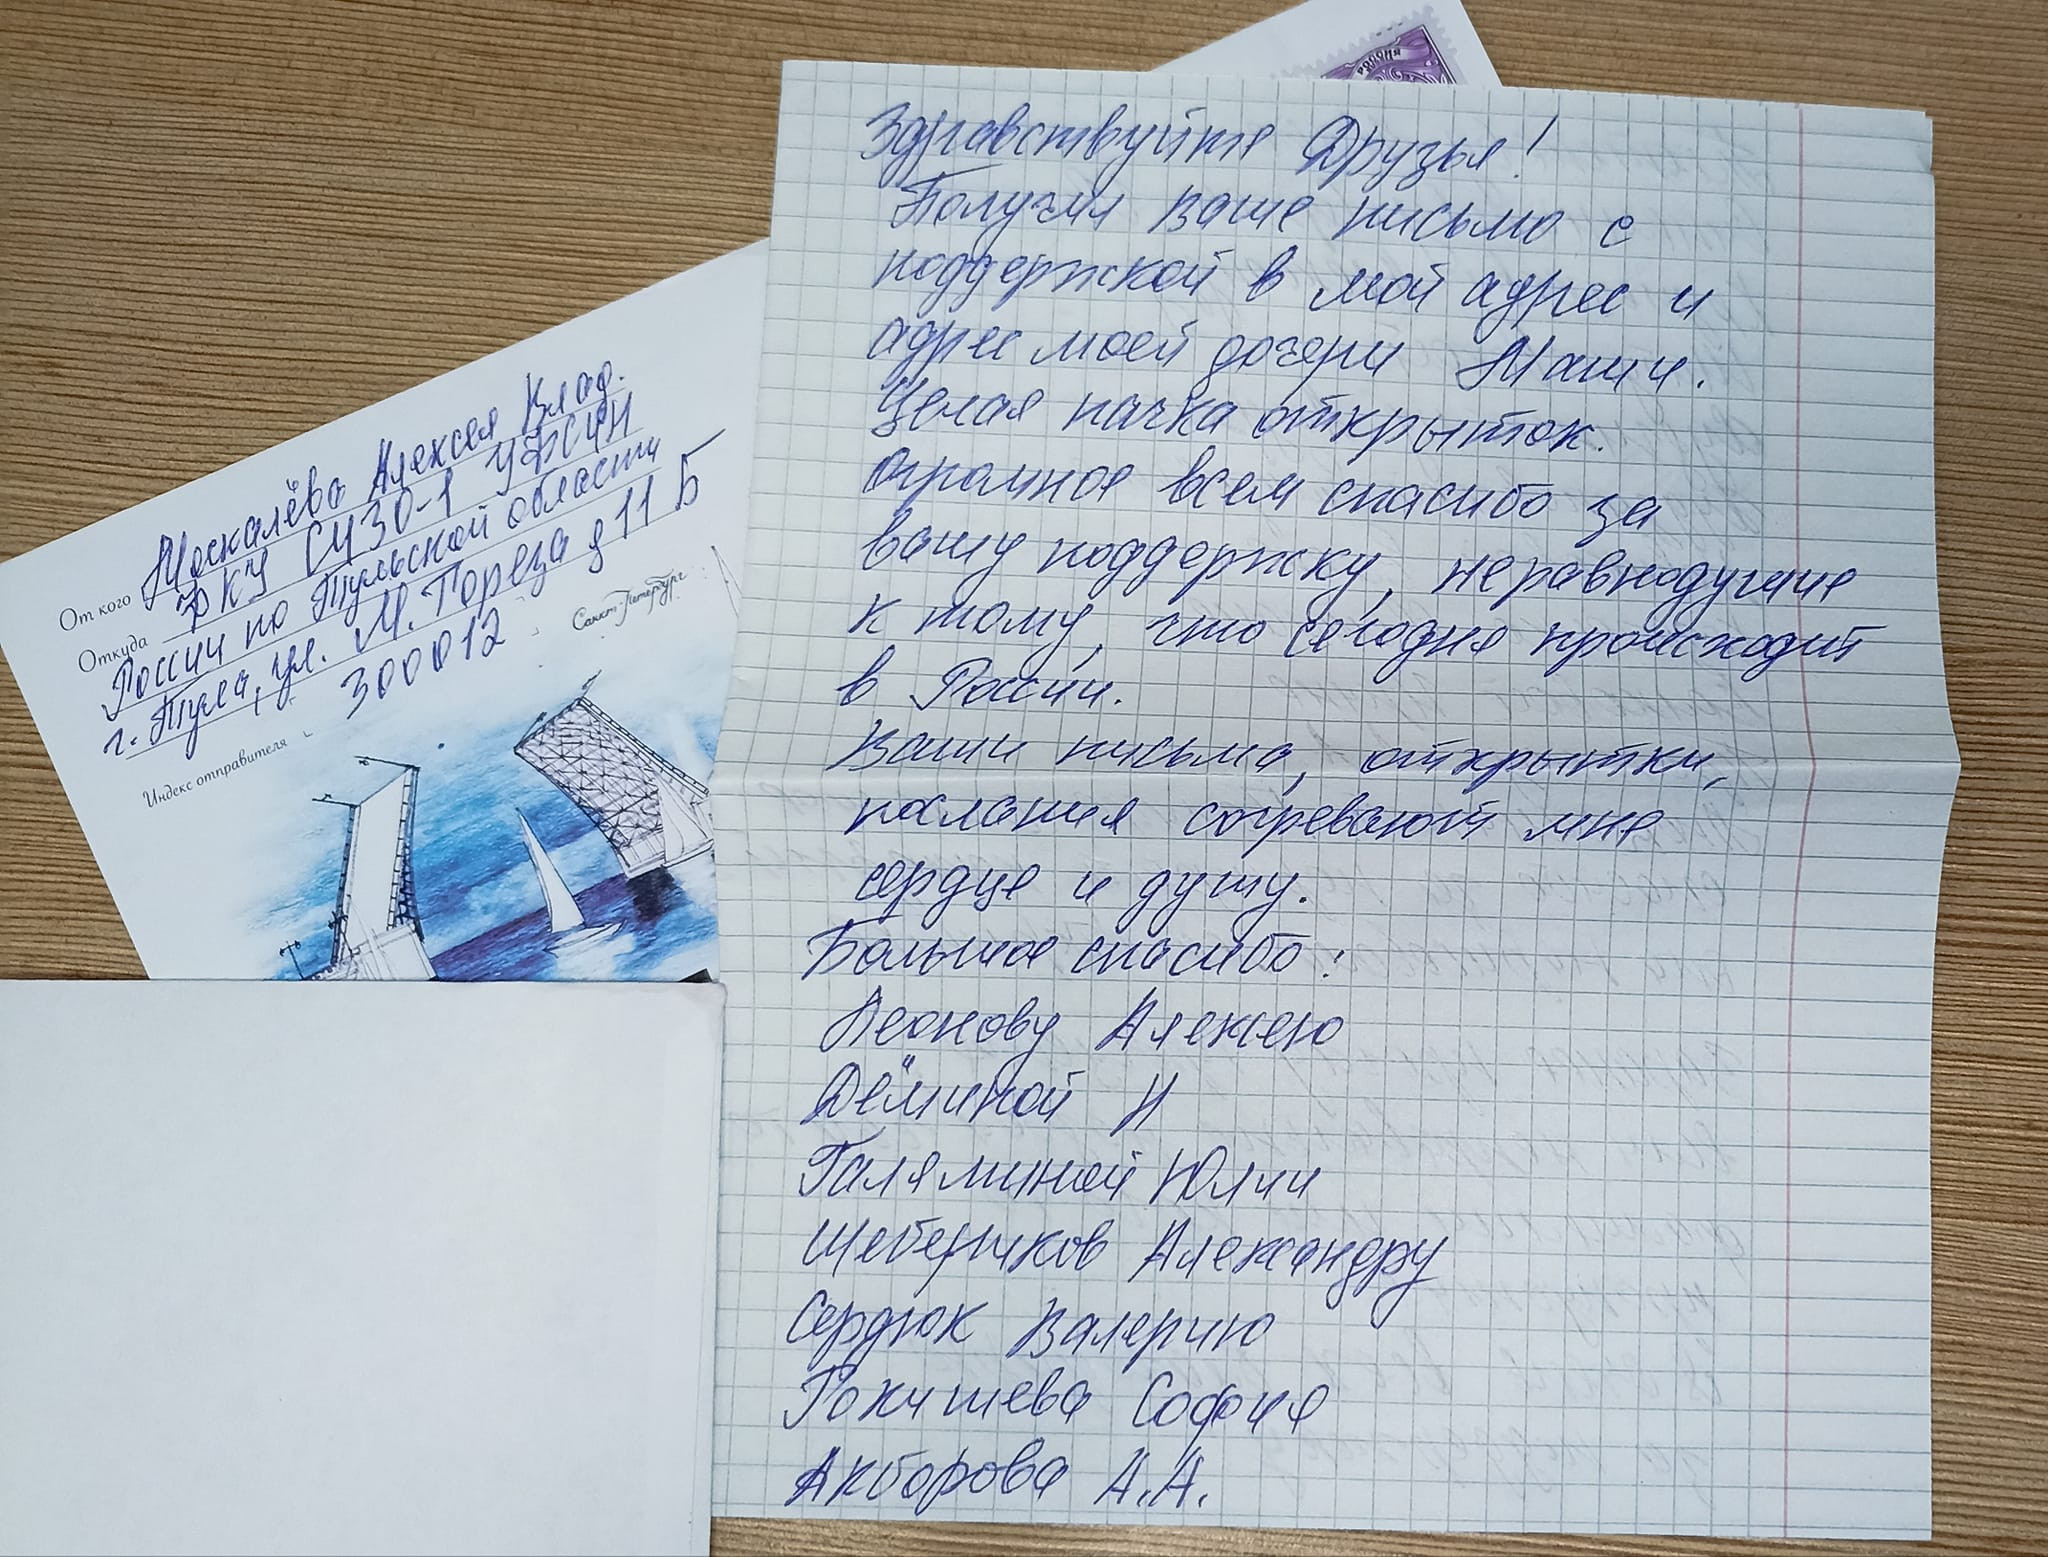 РОССИЯ
От кого Москалёва Алексея Влад.
Откуда ФКУ СИЗО-1 УФСИН
России по Тульской области
г. Тула, ул. М. Тореза д 11 Б
300012
Индекс отправителя
Санкт-Петербург
Здравствуйте Друзья!
Получил ваше письмо с
поддержкой в мой адрес и
адрес моей дочери Маши.
Целая пачка открыток.
Огромное всем спасибо за
вашу поддержку, неравнодушие
к тому, что сегодня происходит
в России.
Ваши письма, открытки,
послания согревают мне
сердце и душу.
Большое спасибо:
Леонову Алексею
Дёминой Н
Галяминой Юлии
Шеберчков Александру
Сердюк Валерию
Рокишева София
Акборова А.А.